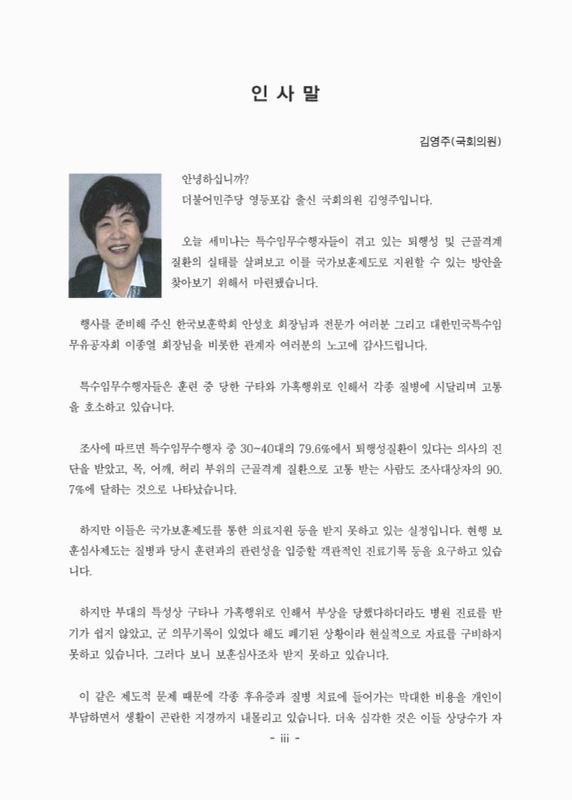 인 사 말
김영주(국회의원)
안녕하십니까?
더불어민주당 영등포갑 출신 국회의원 김영주입니다.
오늘 세미나는 특수임무수행자들이 겪고 있는 퇴행성 및 근골격계
질환의 실태를 살펴보고 이를 국가보훈제도로 지원할 수 있는 방안을
찾아보기 위해서 마련됐습니다.
행사를 준비해 주신 한국보훈학회 안성호 회장님과 전문가 여러분 그리고 대한민국특수임
무유공자회 이종열 회장님을 비롯한 관계자 여러분의 노고에 감사드립니다.
특수임무수행자들은 훈련 중 당한 구타와 가혹행위로 인해서 각종 질병에 시달리며 고통
을 호소하고 있습니다.
조사에 따르면 특수임무수행자 중 30~40대의 79.6%에서 퇴행성질환이 있다는 의사의 진
단을 받았고, 목, 어깨, 허리 부위의 근골격계 질환으로 고통 받는 사람도 조사대상자의 90.
7%에 달하는 것으로 나타났습니다.
하지만 이들은 국가보훈제도를 통한 의료지원 등을 받지 못하고 있는 실정입니다. 현행 보
훈심사제도는 질병과 당시 훈련과의 관련성을 입증할 객관적인 진료기록 등을 요구하고 있습
니다.
하지만 부대의 특성상 구타나 가혹행위로 인해서 부상을 당했다하더라도 병원 진료를 받
기가 쉽지 않았고, 군 의무기록이 있었다 해도 폐기된 상황이라 현실적으로 자료를 구비하지
못하고 있습니다. 그러다 보니 보훈심사조차 받지 못하고 있습니다.
이 같은 제도적 문제 때문에 각종 후유증과 질병 치료에 들어가는 막대한 비용을 개인이
부담하면서 생활이 곤란한 지경까지 내몰리고 있습니다. 더욱 심각한 것은 이들 상당수가 자
- iii -